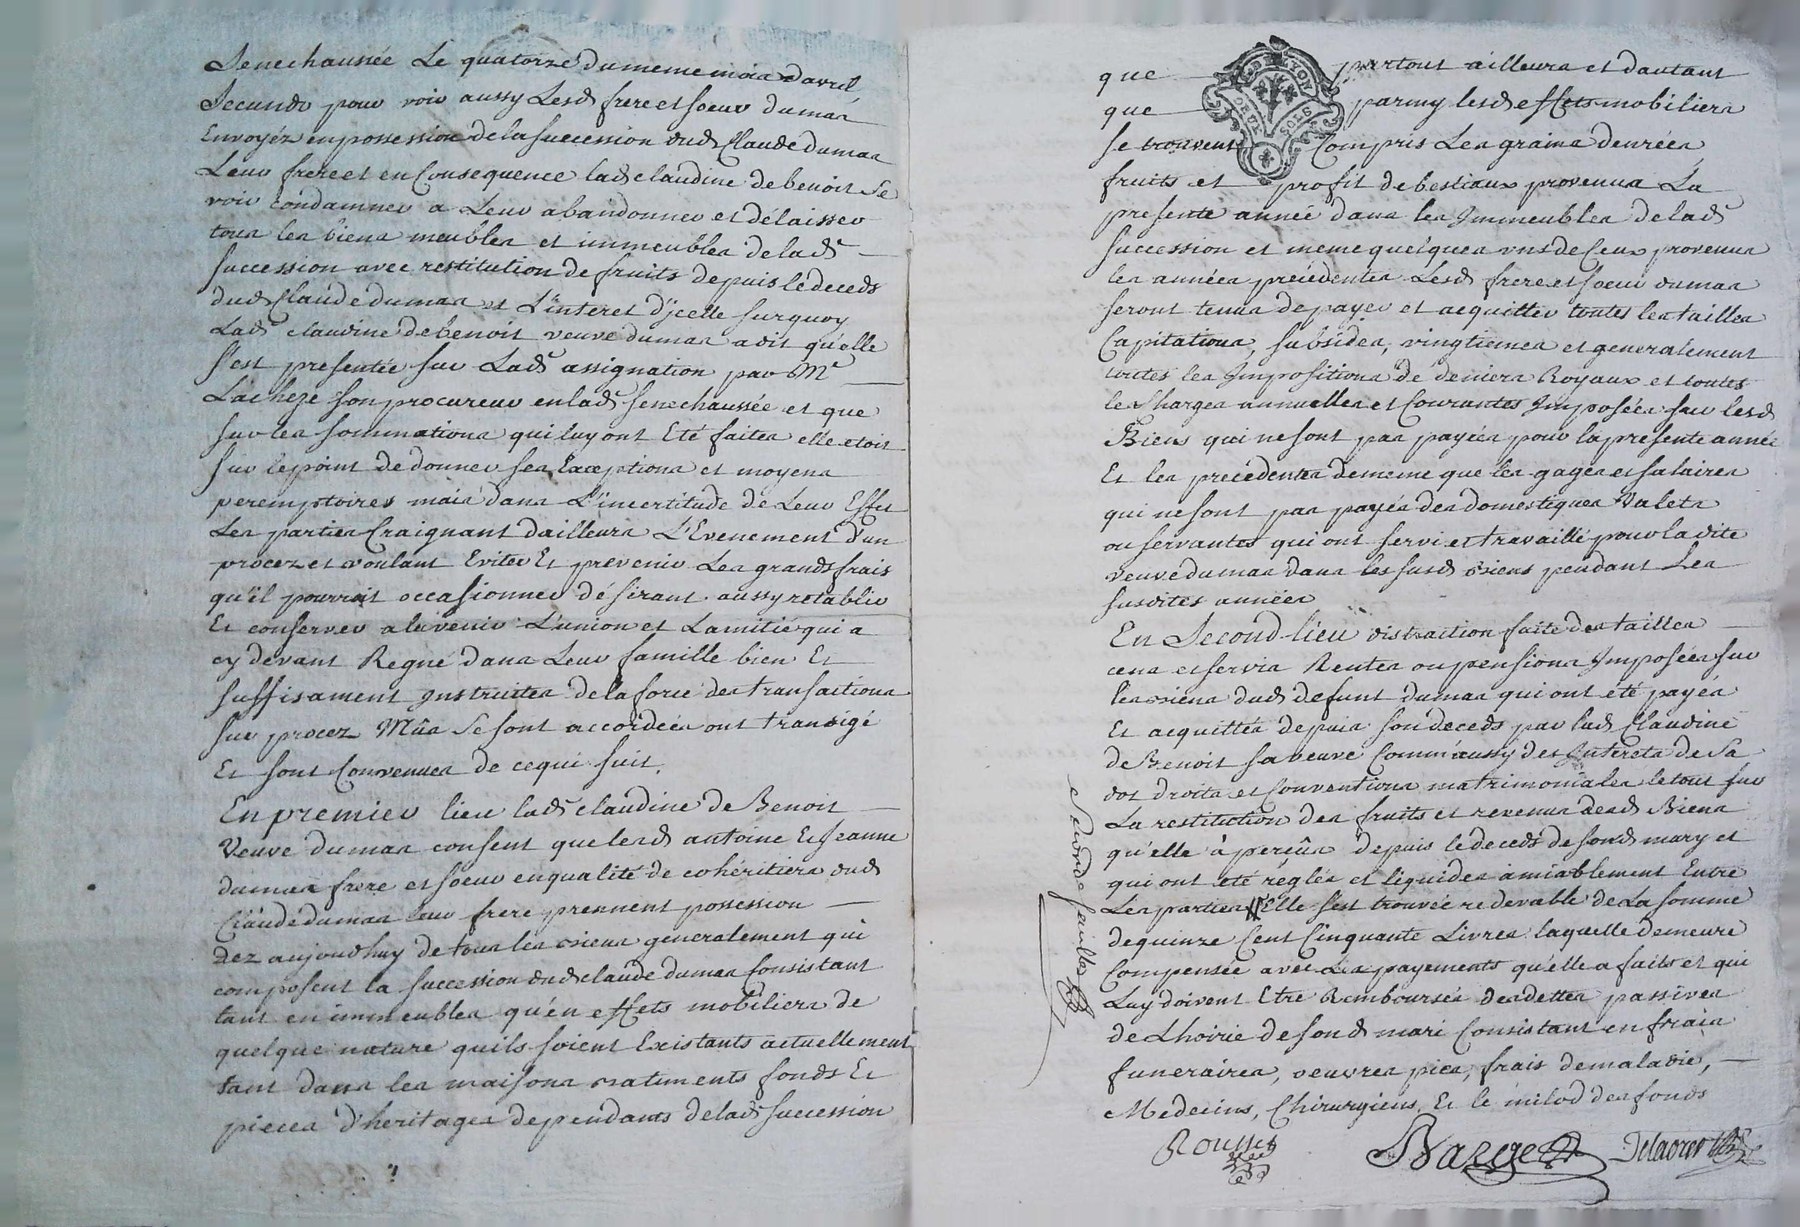 Senechaussée Le quatorze du meme mois d'avril,
Secundo pour voir aussy Lesd frere et soeur dumas
Envoyéz en possession de la succession dud Claude dumas
Leur frere et en Consequence lad claudine debenoit se
voir condamner a Leur abandonner et délaisser
tous les biens meubles et immeubles de lad
succession avec restitution de fruits depuis le deceds
dud Claude dumas et L'interet d'jcelle surquoy
Lad claudine debenoit veuve dumas a dit qu'elle
s'est presentée sur Lad assignation par Me
Lacheze son procureur en lad senechaussée et que
sur les sommations qui luy ont Eté faites elle etoit
sur le point de donner ses Exceptions et moyens
peremptoires mais dans L'incertitude de Leur Effet
Les parties Craignant d'ailleurs L'Evenement d'un
procez et voulant Eviter Et prevenir Les grands frais
qu'il pourroit occasionner désirant aussy retablir
Et conserver a lavenir L'union et Lamitié qui a
cy devant Regné dans Leur famille bien Et
suffisament Instruites de la force des transactions
sur procez Mûs se sont accordées ont transigé
Et sont Convenues de ce qui suit.
En premier lieu lad claudine de Benoit
Veuve dumas consent que lesd antoine Et Jeanne
dumas frere et soeur en qualité de cohéritiers dud
Claude dumas leur frere prennent possession
dez aujourdhuy de tous les biens generalement qui
composent la succession dud claude dumas Consistant
tant en immeubles qu'en effets mobiliers de
quelque nature quils soient Existants actuellement
tant dans les maisons batiments fonds Et
pieces d'heritages dependants de lad succession
que partout ailleurs et dautant
que parmy lesd effets mobiliers
se trouvent Compris Les grains denrées
fruits et profit de bestiaux provenus La
presente année dans les Immeubles de lad
succession et meme quelques uns de Ceux provenus
les années précédentes Lesd frere et soeur dumas
seront tenus de payer et acquitter toutes les tailles
Capitations, subsides, vingtiemes et generalement
toutes les Impositions de deniers Royaux et toutes
les Charges annuelles et Courantes Imposées sur lesd
Biens qui ne sont pas payées pour la presente année
Et les précédentes de meme que les gages et salaires
qui ne sont pas payés des domestiques Valets
ou servantes qui ont servi et travaillé pour ladite
veuve dumas dans les susd biens pendant Les
susdites années
En Second lieu distraction faite des tailles
cens et servis Rentes ou pensions Imposées sur
les biens dud defunt dumas qui ont été payés
Et acquittés depuis son deceds par lad Claudine
de Benoit sa veuve Comm'aussy des Interets de Sa
dot droits et Conventions matrimoniales le tout sur
La restitution des fruits et revenus desd Biens
qu'elle à perçûs depuis le deceds de sond mary et
qui ont été réglés et liquides amiablement Entre
Les parties Elle s'est trouvée redevable de La somme
de quinze Cent Cinquante Livres laquelle demeure
Compensée avec Les payements qu'elle a faits et qui
Luy doivent Etre Remboursés des dettes passives
de Lhoirie de sond mari Consistant en frais
funeraires, oeuvres pies, frais de maladie,
Medecins, Chirurgiens, Et le milod des fonds
Seconde feuille
DE LYON
DEUX SOLS
Rousset
Barge